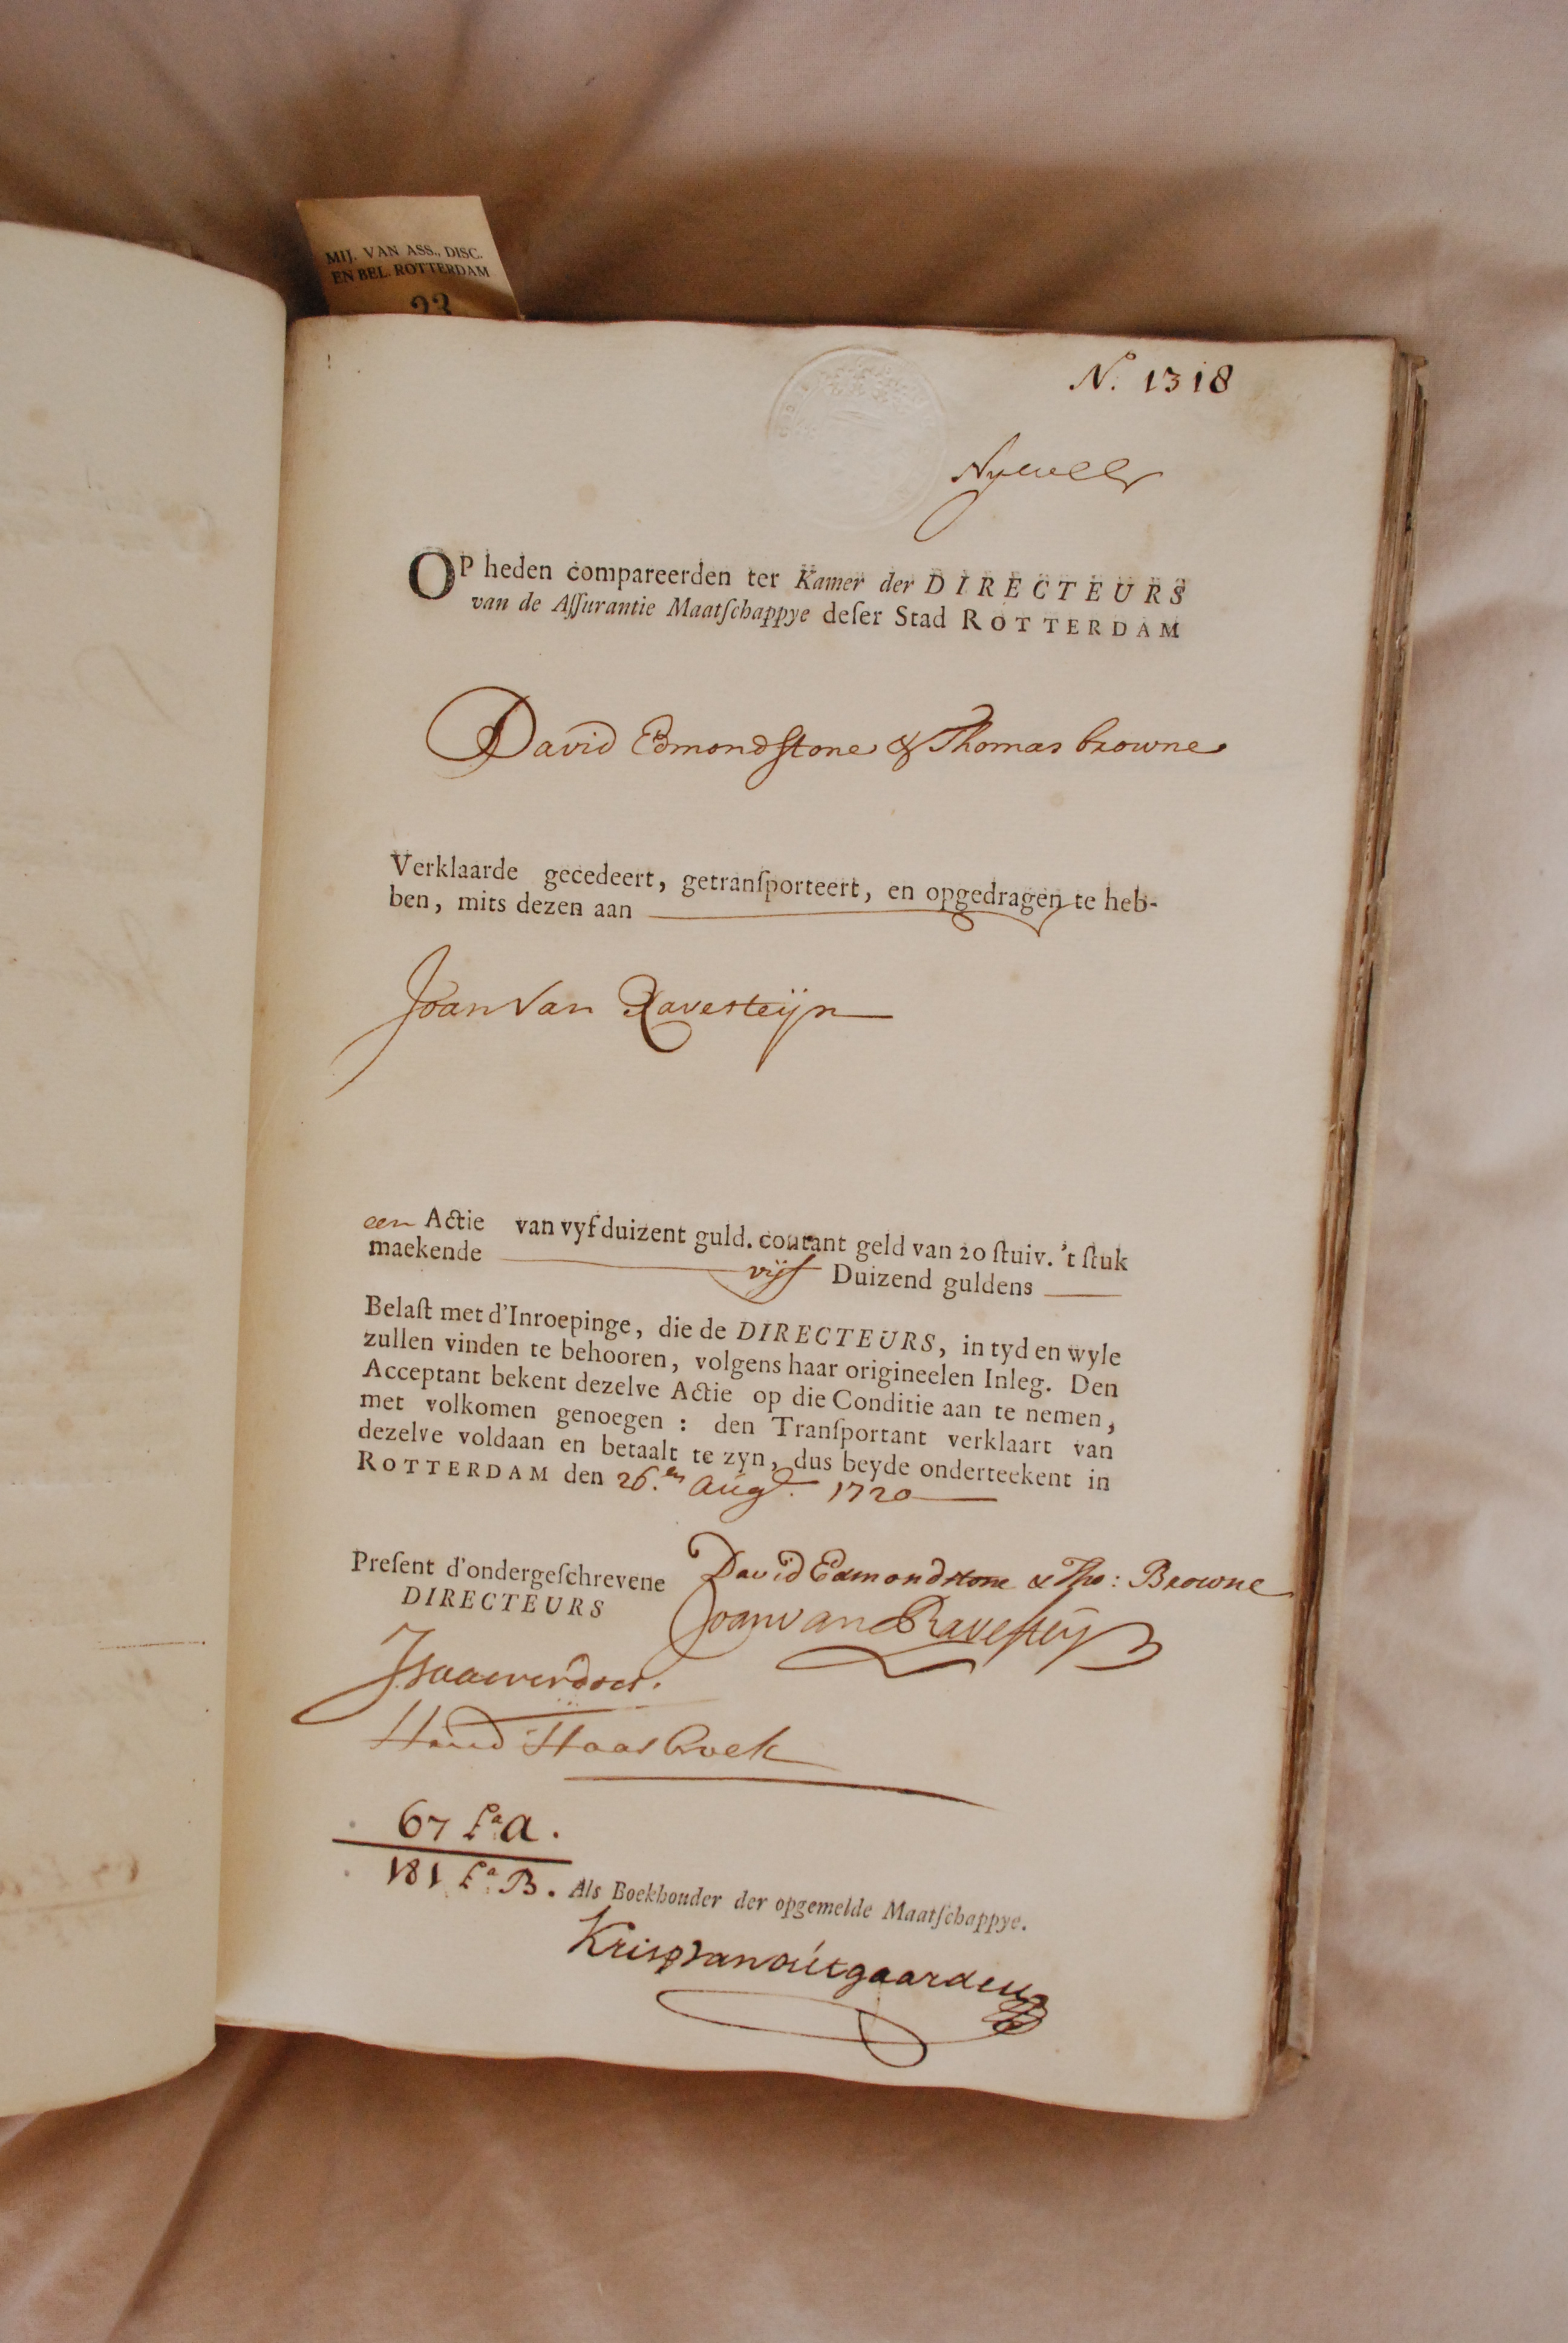 MIJ. VAN ASS., DISC.
EN BEL. ROTTERDAM
23
N.º 1318
OP heden compareerden ter Kamer der DIRECTEURS
van de Aſſurantie Maatſchappye deſer Stad ROTTERDAM
David Edmondstone & Thomas browne
Verklaarde gecedeert, getranſporteert, en opgedragen te heb-
ben, mits dezen aan
Joan Van Ravesteijn
een Actie van vyfduizent guld. courant geld van 20 ſtuiv. 't ſtuk
maekende vijf Duizend guldens
Belaſt met d'Inroepinge, die de DIRECTEURS, in tyd en wyle
zullen vinden te behooren, volgens haar origineelen Inleg. Den
Acceptant bekent dezelve Actie op die Conditie aan te nemen,
met volkomen genoegen : den Tranſportant verklaart van
dezelve voldaan en betaalt te zyn, dus beyde onderteekent in
ROTTERDAM den 26.en Augt. 1720
Preſent d'ondergeſchrevene David Edmondstone & Tho: Browne
DIRECTEURS Joan van Ravesteyn
67 La A.
181 La B. Als Boekhouder der opgemelde Maatſchappye.